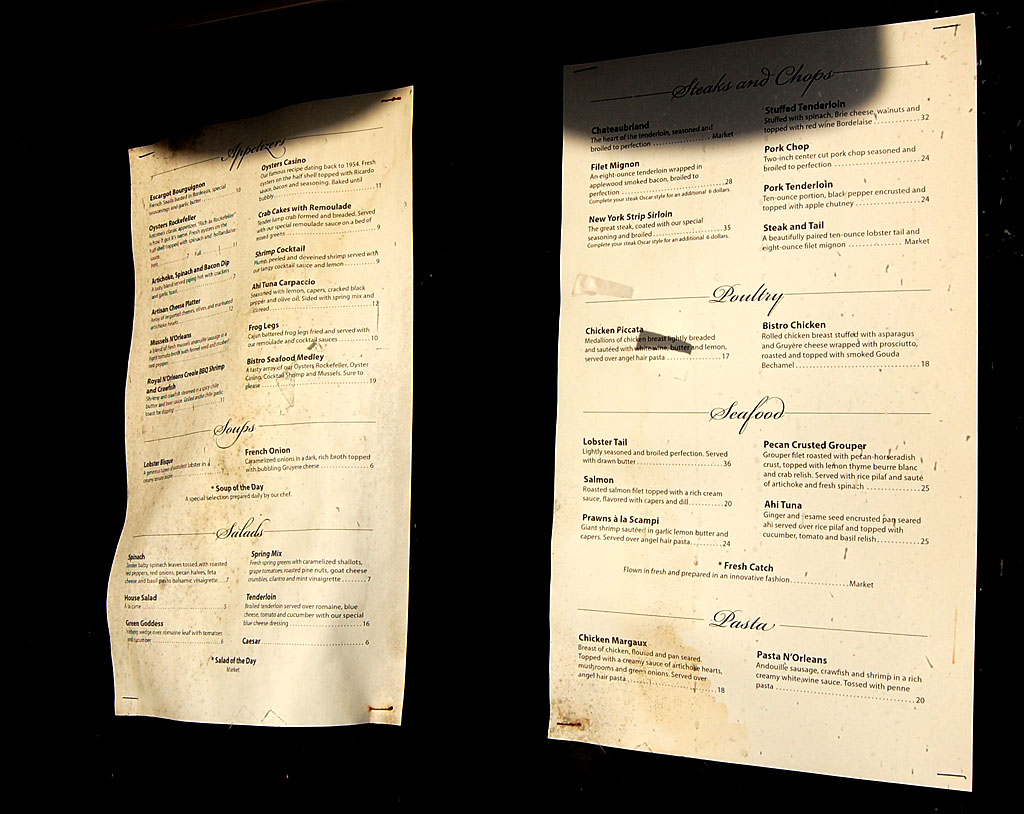 Appetizers
Escargot Bourguignon
French Snails basted in Bordeaux, special
seasonings and garlic butter 10
Oysters Rockefeller
Antoine's classic appetizer. "Rich as Rockefeller"
is how it got it's name. Fresh oysters on the
half shell topped with spinach and hollandaise
sauce.
Half 7 Full 11
Artichoke, Spinach and Bacon Dip
A tasty blend served piping hot with crackers
and garlic toast 7
Artisan Cheese Platter
Array of imported cheeses, olives and marinated
artichoke hearts 12
Mussels N'Orleans
a blend of fresh mussels andouille sausage in a
light tomato broth with fennel seed and
red pepper
Royal N'Orleans Creole BBQ Shrimp
and Crawfish
Shrimp and crawfish steamed in a spicy chile
butter and beer sauce. Grilled ancho chile garlic
toast for dipping 11
Oysters Casino
Our famous recipe dating back to 1954. Fresh
oysters on the half shell topped with Ricardo
sauce, bacon and seasoning. Baked until
bubbly 11
Crab Cakes with Remoulade
Tender lump crab formed and breaded. Served
with our special remoulade sauce on a bed of
mixed greens 9
Shrimp Cocktail
Plump, peeled and deveined shrimp served with
our tangy cocktail sauce and lemon 9
Ahi Tuna Carpaccio
Seasoned with lemon, capers, cracked black
pepper and olive oil. Sided with spring mix and
12
Frog Legs
Cajun battered frog legs fried and served with
our remoulade and cocktail sauces 10
Bistro Seafood Medley
A tasty array of our Oysters Rockefeller, Oyster
Casino, Cocktail Shrimp and Mussels. Sure to
please 19
Soups
Lobster Bisque
A generous of lobster in a
creamy tomato
French Onion
Caramelized onions in a dark, rich broth topped
with bubbling Gruyere cheese 6
* Soup of the Day
A special selection prepared daily by our chef.
Salads
Spinach
Tender baby spinach leaves tossed with roasted
red peppers, red onions, pecan halves, feta
cheese and basil pesto balsamic vinaigrette 7
House Salad
A la carte 5
Green Goddess
Iceberg wedge over romaine leaf with tomatoes
and cucumber 6
Spring Mix
Fresh spring greens with caramelized shallots,
grape tomatoes, roasted pine nuts, goat cheese
crumbles, cilantro and mint vinaigrette 7
Tenderloin
Broiled tenderloin served over romaine, blue
cheese, tomato and cucumber with our special
blue cheese dressing 16
Caesar 6
* Salad of the Day
Market
Steaks and Chops
Chateaubriand
The heart of the tenderloin, seasoned and
broiled to perfection Market
Filet Mignon
An eight-ounce tenderloin wrapped in
applewood smoked bacon, broiled to
perfection 28
Complete your steak Oscar style for an additional 6 dollars.
New York Strip Sirloin
The great steak, coated with our special
seasoning and broiled 35
Complete your steak Oscar style for an additional 6 dollars.
Stuffed Tenderloin
Stuffed with spinach, Brie cheese, walnuts and
topped with red wine Bordelaise 32
Pork Chop
Two-inch center cut pork chop seasoned and
broiled to perfection 24
Pork Tenderloin
Ten-ounce portion, black pepper encrusted and
topped with apple chutney 24
Steak and Tail
A beautifully paired ten-ounce lobster tail and
eight-ounce filet mignon Market
Poultry
Chicken Piccata
Medallions of chicken breast lightly breaded
and sautéed with white wine, butter and lemon,
served over angel hair pasta 17
Bistro Chicken
Rolled chicken breast stuffed with asparagus
and Gruyère cheese wrapped with prosciutto,
roasted and topped with smoked Gouda
Bechamel 18
Seafood
Lobster Tail
Lightly seasoned and broiled perfection. Served
with drawn butter 36
Salmon
Roasted salmon filet topped with a rich cream
sauce, flavored with capers and dill 20
Prawns à la Scampi
Giant shrimp sautéed in garlic lemon butter and
capers. Served over angel hair pasta 24
Pecan Crusted Grouper
Grouper filet roasted with pecan-horseradish
crust, topped with lemon thyme beurre blanc
and crab relish. Served with rice pilaf and sauté
of artichoke and fresh spinach 25
Ahi Tuna
Ginger and sesame seed encrusted pan seared
ahi served over rice pilaf and topped with
cucumber, tomato and basil relish 25
* Fresh Catch
Flown in fresh and prepared in an innovative fashion Market
Pasta
Chicken Margaux
Breast of chicken, floured and pan seared.
Topped with a creamy sauce of artichoke hearts,
mushrooms and green onions. Served over
angel hair pasta 18
Pasta N'Orleans
Andouille sausage, crawfish and shrimp in a rich
creamy white wine sauce. Tossed with penne
pasta 20